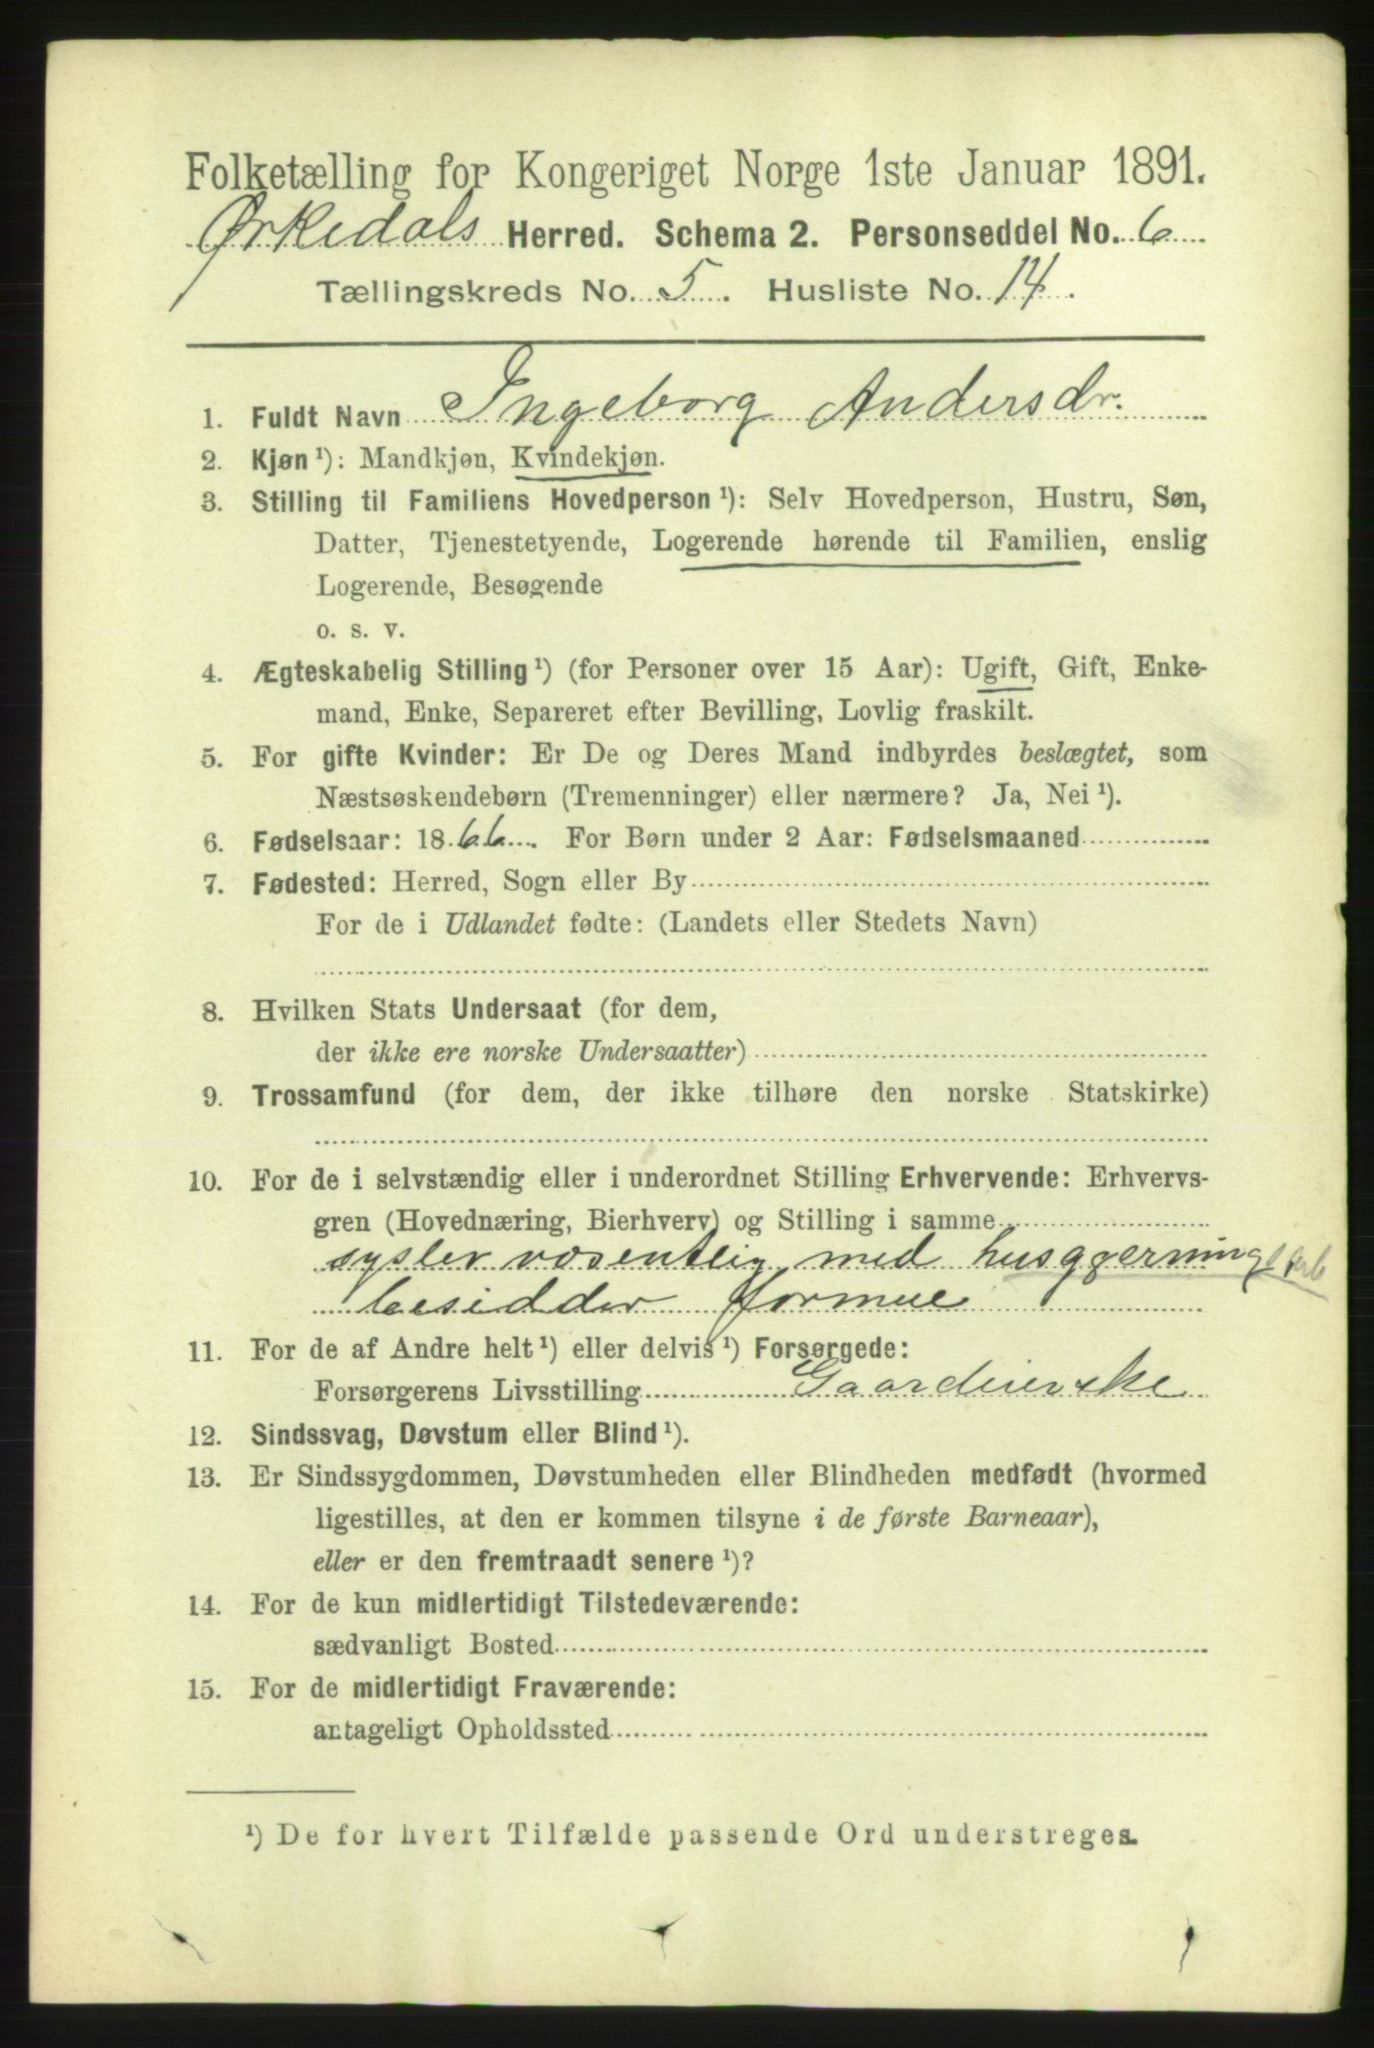 Folketælling for Kongeriget Norge 1ste Januar 1891.
Ørkedals Herred. Schema 2. Personseddel No. 6
Tællingskreds No. 5. Husliste No. 14.
1. Fuldt Navn Ingeborg Andersdr.
2. Kjøn ¹): Mandkjøn, Kvindekjøn.
3. Stilling til Familiens Hovedperson ¹): Selv Hovedperson, Hustru, Søn,
Datter, Tjenestetyende, Logerende hørende til Familien, enslig
Logerende, Besøgende
o. s. v.
4. Ægteskabelig Stilling ¹) (for Personer over 15 Aar): Ugift, Gift, Enke-
mand, Enke, Separeret efter Bevilling, Lovlig fraskilt.
5. For gifte Kvinder: Er De og Deres Mand indbyrdes beslægtet, som
Næstsøskendebørn (Tremenninger) eller nærmere? Ja, Nei ¹).
6. Fødselsaar: 1866. For Børn under 2 Aar: Fødselsmaaned
7. Fødested: Herred, Sogn eller By
For de i Udlandet fødte: (Landets eller Stedets Navn)
8. Hvilken Stats Undersaat (for dem,
der ikke ere norske Undersaatter)
9. Trossamfund (for dem, der ikke tilhøre den norske Statskirke)
10. For de i selvstændig eller i underordnet Stilling Erhvervende: Erhvervs-
gren (Hovednæring, Bierhverv) og Stilling i samme
sysler væsentlig med husgjerning
besidder formue
11. For de af Andre helt ¹) eller delvis ¹) Forsørgede:
Forsørgerens Livsstilling Gaardeierske
12. Sindssvag, Døvstum eller Blind ¹).
13. Er Sindssygdommen, Døvstumheden eller Blindheden medfødt (hvormed
ligestilles, at den er kommen tilsyne i de første Barneaar),
eller er den fremtraadt senere ¹)?
14. For de kun midlertidigt Tilstedeværende:
sædvanligt Bosted
15. For de midlertidigt Fraværende:
antageligt Opholdssted
¹) De for hvert Tilfælde passende Ord understreges.